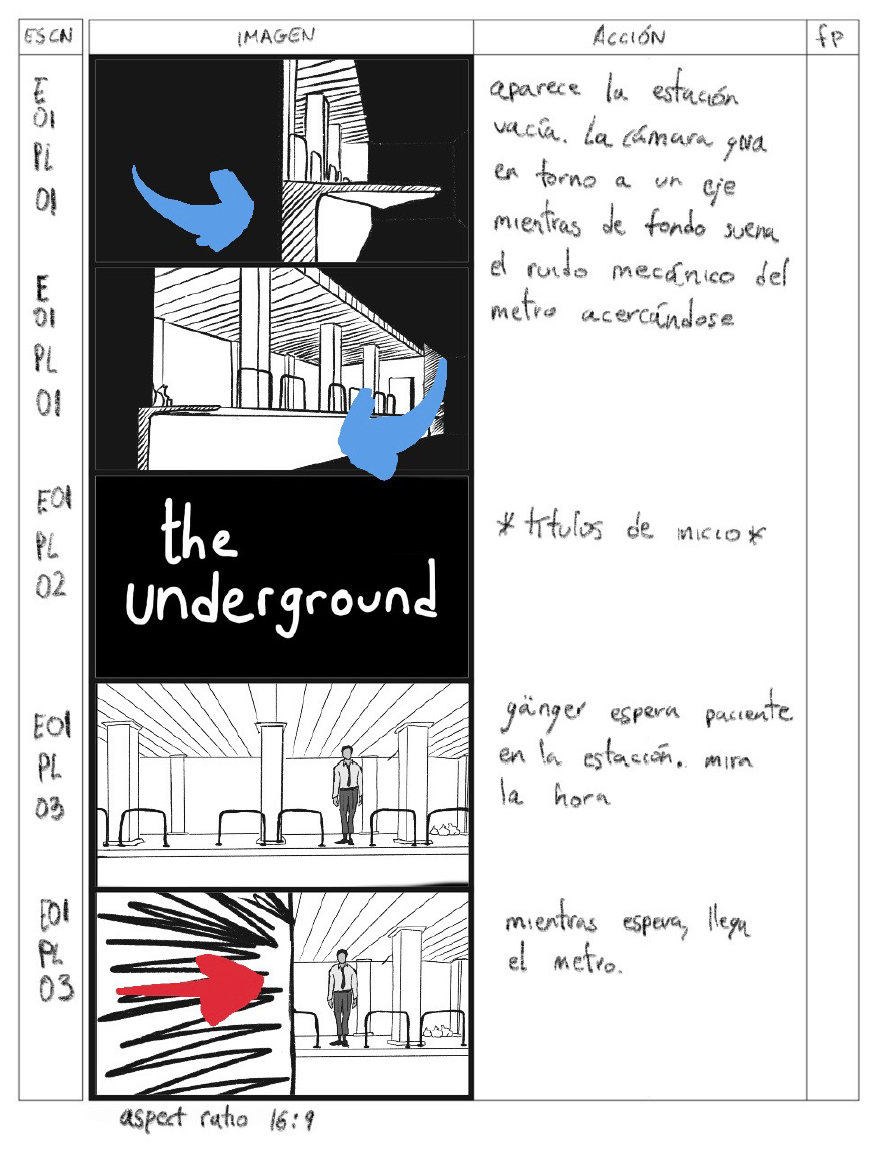 ESCN IMAGEN ACCIÓN fp
E
01
PL
01
aparece la estación
vacía. La cámara gira
en torno a un eje
mientras de fondo suena
el ruido mecánico del
metro acercándose
E
01
PL
01
E01
PL
02
the
underground
*títulos de inicio*
E01
PL
03
gänger espera paciente
en la estación. mira
la hora
E01
PL
03
mientras espera, llega
el metro.
aspect ratio 16:9